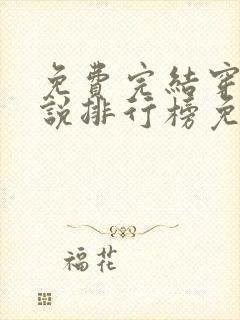 免費完結穿
說排行榜免
福花